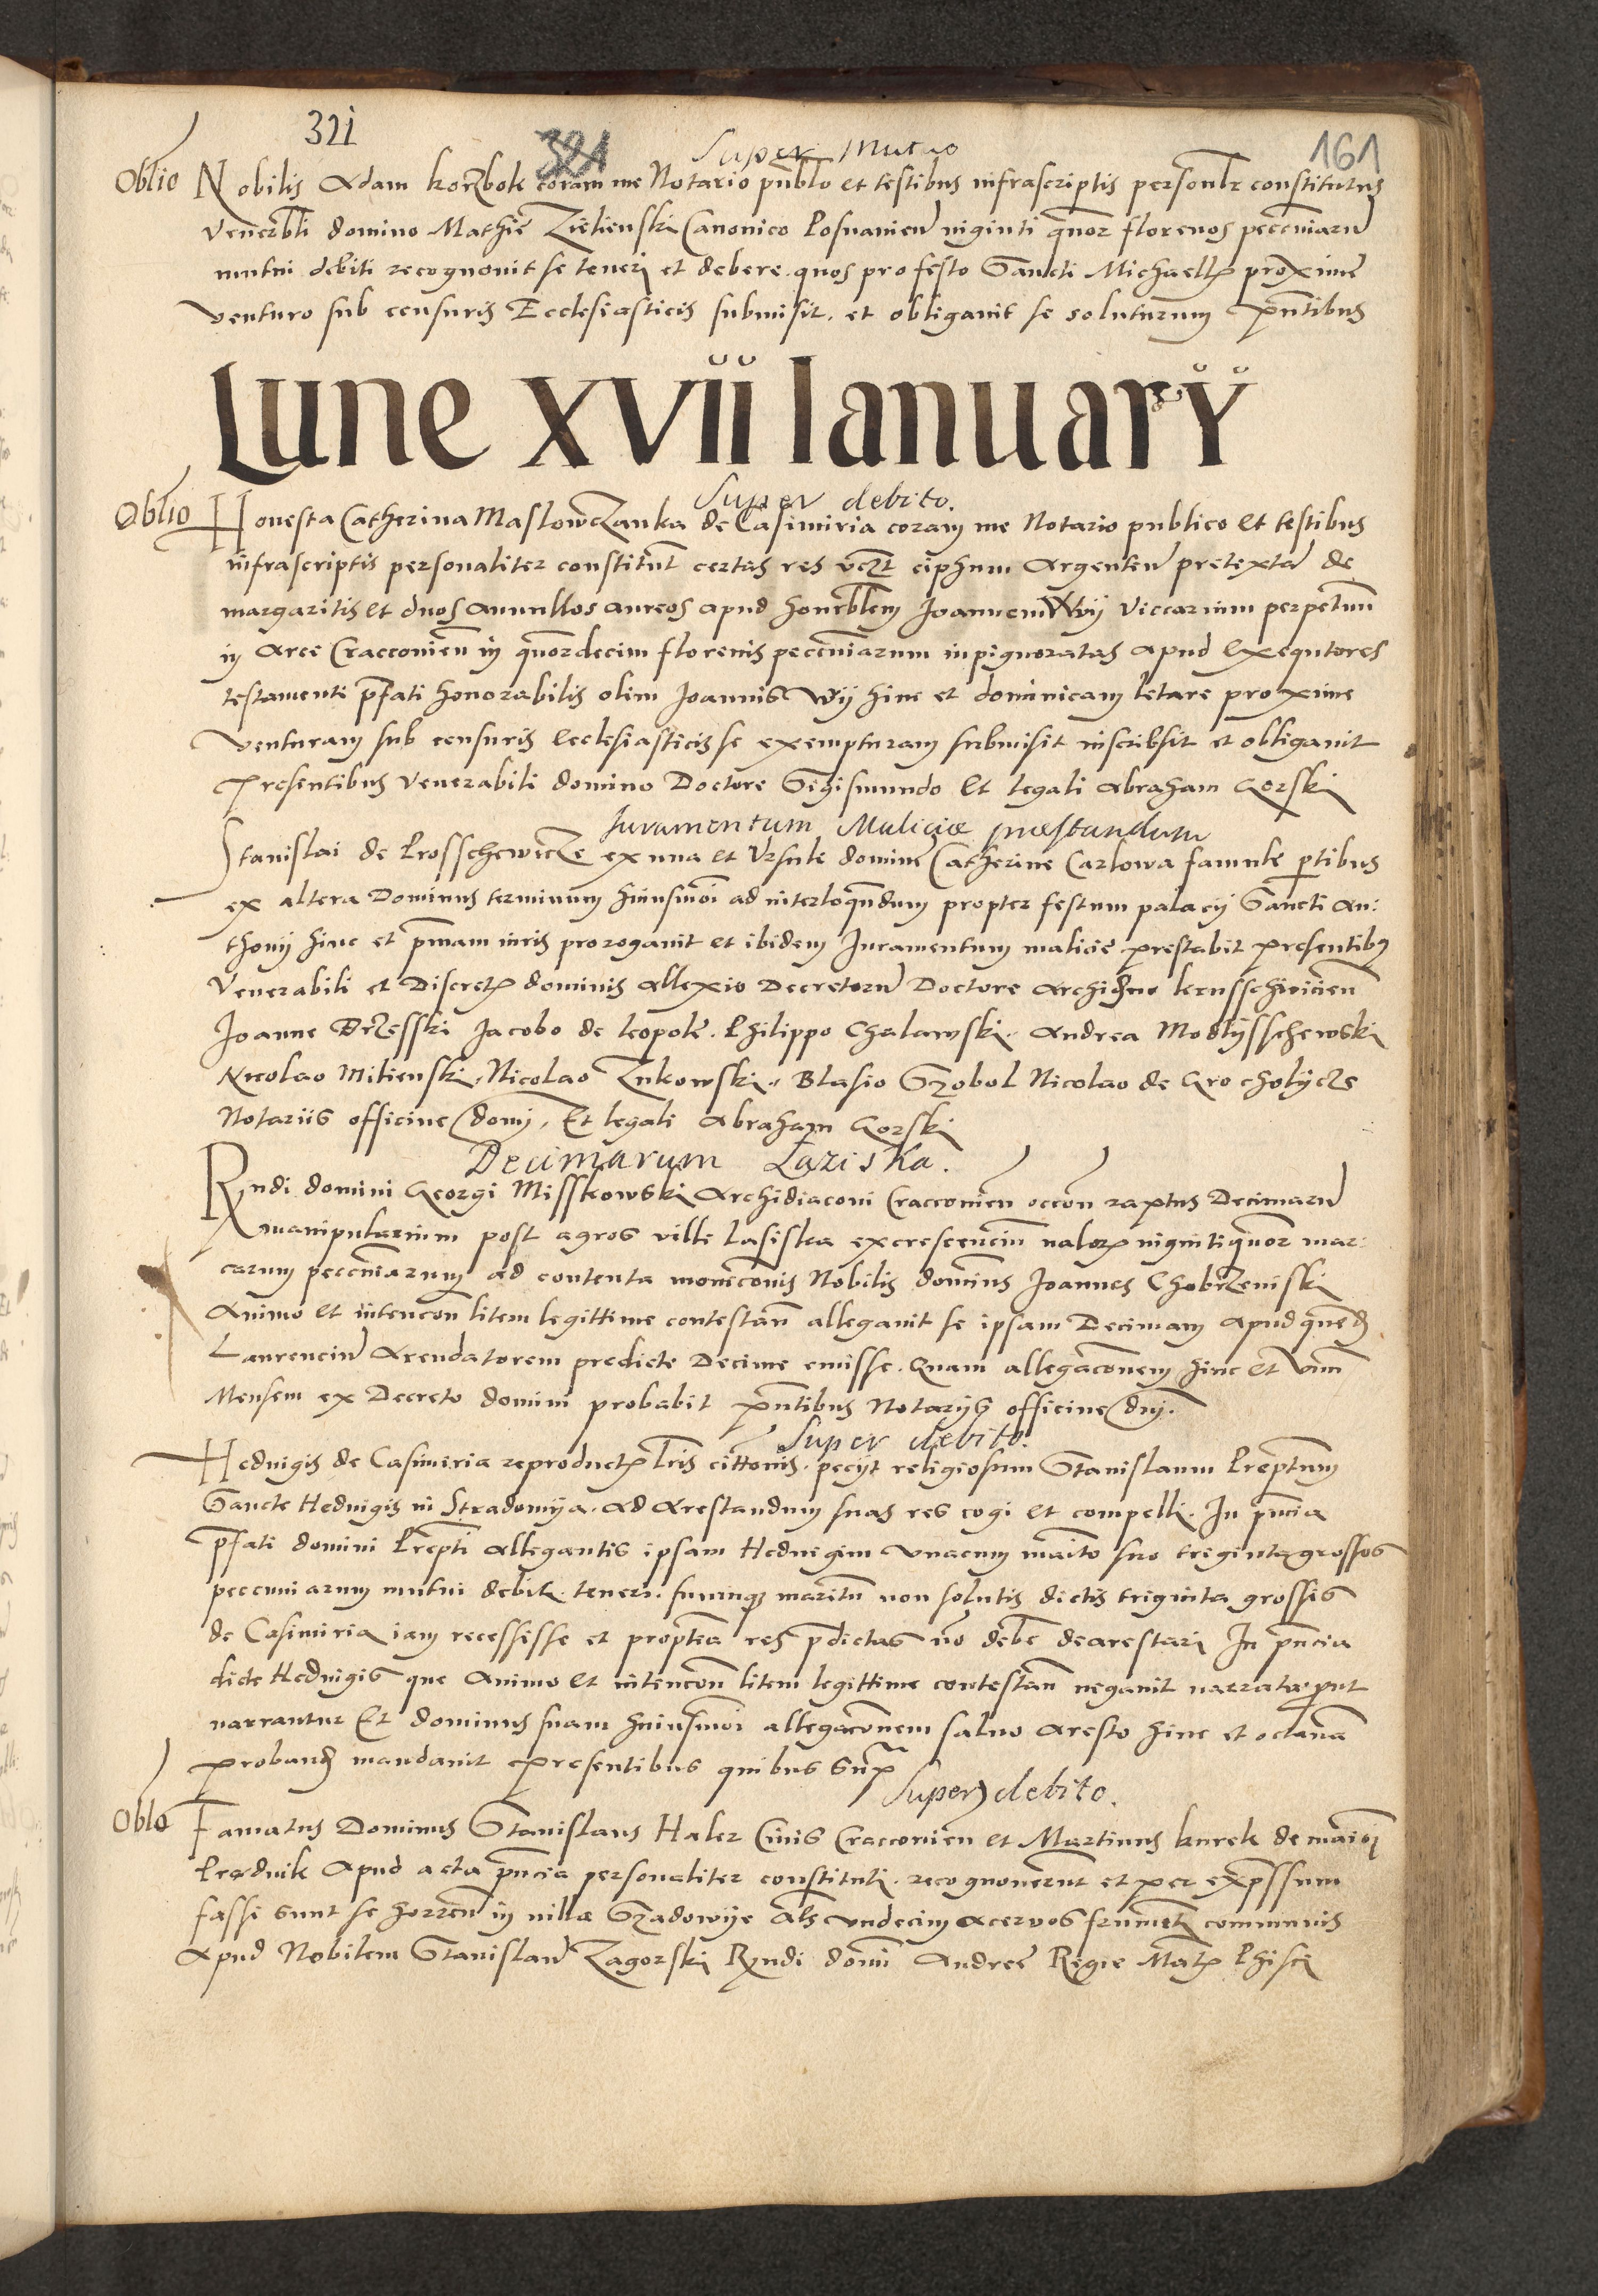 321
321
161
Super Mutuo
Oblio Nobilis Adam korzbok coram me Notario publo et testibus infrascriptis personlr constitutus
venerbli domino Mathie Zielienski Canonico Posnanien viginti quor florenos pecuniaru
mutui debiti recognovit se teneri et debere. quos pro festo Sancti Michaelis proxime
venturo sub censuris Ecclesiasticis submisit. et obligavit se soluturum pntibus
Lune xvii Ianuarÿ
Super debito.
Oblio Honesta Catherina Maslowczanka de Casimiria coram me Notario publico et testibus
infrascriptis personaliter constitut certas res vczt ciphum Argenteu pretextu de
margaritis et duos annullos aureos apud honrblem Joannem Wij viccarium perpetuu
in Arce Cracconien in quordecim florenis peccuniarum inpignoratas apud exequtores
testamenti pfati honorabilis olim Joannis Wij hinc et dominicam letare proxime
venturam sub censuris ecclesiasticis se exempturam submisit inscribsit et obligavit
presentibus venerabili domino Doctore Sigismundo et legali Abraham Gorski
Iuramentum Maliciæ præstandum
Stanislai de Prosschewicze ex una et Ursule domine Catherine Carlowa famule ptibus
ex altera Dominus terminum huiusmoi ad interloquendum propter festum palacij Sancti An:
thonij hinc et pmam iuris prorogavit et ibidem Iuramentum malicie prestabit presentibus
Venerabili et Discretis dominis Allexio Decretoru Doctore Archidno
Joanne Brzesski Jacobo de leopole. Philippo Chalawski. Andrea Modlysschewski
Nicolao Milienski, Nicolao Zukowski, Blasio Nicolao de Grocholycze
Notariis officine domi, Et legali Abraham Gorski
Decimarum Laziska.
Rndi domini Georgi Misskowski Archidiaconi Cracconien occon raptus Decimaru
manipularium post agros ville lasiska excrescenciu valoris viginti quor mar:
carum peccuniarum ad contenta monicconis Nobilis dominus Joannes Chobrzeniski
Animo et intencon litem legittime contestan allegavit se ipsam Decimam apud quend
Laurenciu Arendatorem predicte Decime emisse. Quam allegacconem hinc et unu
Mensem ex Decreto domini probabit pntibus Notariis officine dni.
Super debito.
Hedvigis de Casimiria reproductis lris cittonis. peciit religiosum Stanislaum Preptum
Sancte Hedvigis in Stradomija. ad Arestandum suas res cogi et compelli. In pncia
pfati domini Prepti allegantis ipsam Hedvigim unacum marito suo triginta grossos
peccuniarum mutui debiti. teneri. suumq maritu non solutis dictis triginta grossis
de Casimiria iam recessisse et proptea res pdictas no debe dearestari In pncia
dicte Hedvigis que Animo et intencon litem legittime contestan negavit narrata prout
narrantur Et dominus suam huiusmoi allegacconem salvo Aresto hinc et octava
proband mandavit presentibus quibus supra
Super debito.
Oblo Famatus Dominus Stanislaus Haler Civis Cracconien et Martinus kurek de maiori
Prądnik Apud acta pncia personaliter constituti. recognoverunt et per expssum
fassi sunt se in villa als undecim acervos frumeti communis
Apud Nobilem Stanislau Zagorski Rndi domi Andree Regie Matis Phisici